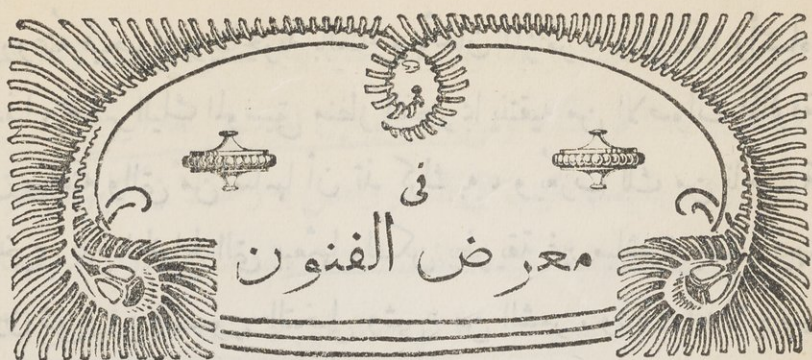 فى
معرض الفنون